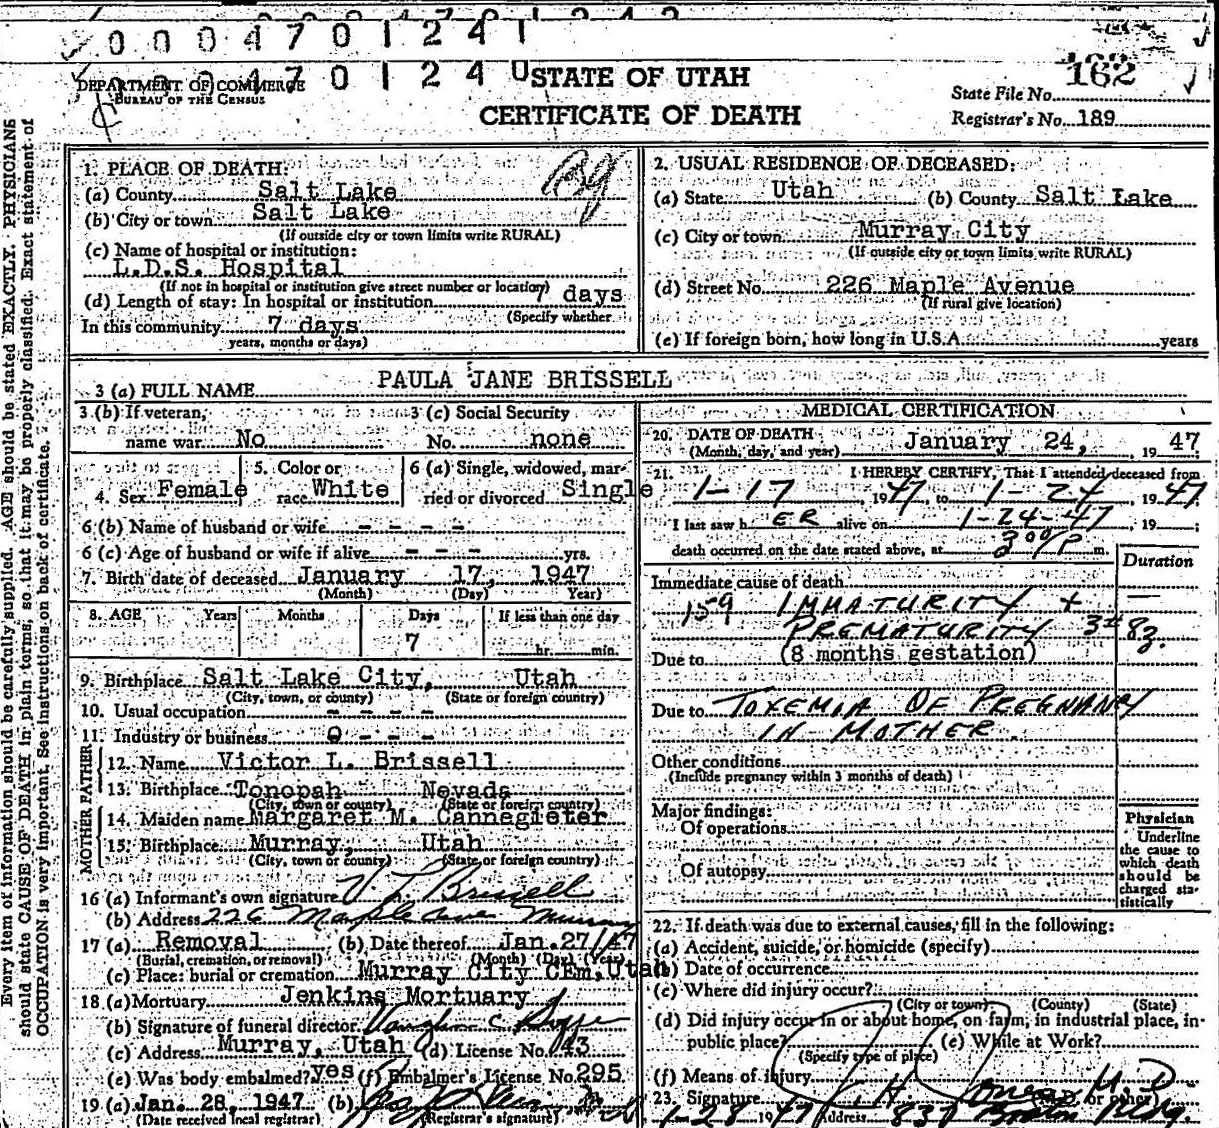 0 0 0 4 7 0 1 2 4 1
0 0 0 4 7 0 1 2 4 0
DEPARTMENT OF COMMERCE
BUREAU OF THE CENSUS
STATE OF UTAH
CERTIFICATE OF DEATH
162
State File No.
Registrar's No. 189
Every item of information should be carefully supplied. AGE should be stated EXACTLY. PHYSICIANS
should state CAUSE OF DEATH in plain terms, so that it may be properly classified. Exact statement of
OCCUPATION is very important. See instructions on back of certificate.
1. PLACE OF DEATH:
(a) County Salt Lake
(b) City or town Salt Lake
(If outside city or town limits write RURAL)
(c) Name of hospital or institution:
L.D.S. Hospital
(If not in hospital or institution give street number or location)
(d) Length of stay: In hospital or institution 7 days
(Specify whether
In this community 7 days
years, months or days)
2. USUAL RESIDENCE OF DECEASED:
(a) State Utah (b) County Salt Lake
(c) City or town Murray City
(If outside city or town limits write RURAL)
(d) Street No. 226 Maple Avenue
(If rural give location)
(e) If foreign born, how long in U.S.A. years
3 (a) FULL NAME PAULA JANE BRISSELL
3 (b) If veteran, 3 (c) Social Security
name war No No. none
4. Sex Female 5. Color or race White 6 (a) Single, widowed, married or divorced Single
6 (b) Name of husband or wife - - - -
6 (c) Age of husband or wife if alive - - - yrs.
7. Birth date of deceased January 17, 1947
(Month) (Day) Year)
8. AGE Years Months Days If less than one day
7 hr. min.
9. Birthplace Salt Lake City, Utah
(City, town, or county) (State or foreign country)
10. Usual occupation - - - -
11. Industry or business - - -
FATHER
12. Name Victor L. Brissell
13. Birthplace Tonopah Nevada
(City, town or county) (State or foreign country)
MOTHER
14. Maiden name Margaret M. Cannegieter
15. Birthplace Murray, Utah
(City, town or county) (State or foreign country)
16 (a) Informant's own signature V. L. Brissell
(b) Address 226 Maple Ave Murray
17 (a) Removal (b) Date thereof Jan. 27/47
(Burial, cremation, or removal) (Month) (Day) (Year)
(c) Place: burial or cremation Murray City CEm, Utah
18 (a) Mortuary Jenkins Mortuary
(b) Signature of funeral director
(c) Address Murray, Utah (d) License No. 43
(e) Was body embalmed? yes (f) Embalmer's License No. 295
19 (a) Jan. 28, 1947 (b)
(Date received local registrar) (Registrar's signature)
MEDICAL CERTIFICATION
20. DATE OF DEATH January 24, 1947
(Month, day, and year)
21. I HEREBY CERTIFY, That I attended deceased from
1-17 1947, to 1-24 1947
I last saw h ER alive on 1-24-47, 19 ;
death occurred on the date stated above, at 3 00/P m.
Duration
Immediate cause of death
159 IMMATURITY +
PREMATURITY 3# 8 oz.
Due to (8 months gestation)
Due to TOXEMIA OF PREGNANCY
IN MOTHER.
Other conditions
(Include pregnancy within 3 months of death)
Major findings:
Of operations
Of autopsy
Physician
Underline
the cause to
which death
should be
charged sta-
tistically
22. If death was due to external causes, fill in the following:
(a) Accident, suicide, or homicide (specify)
(b) Date of occurrence
(c) Where did injury occur?
(City or town) (County) (State)
(d) Did injury occur in or about home, on farm, in industrial place, in-
public place? (e) While at Work?
(Specify type of place)
(f) Means of injury
23. Signature M. D. (M.D. or other)
1-28 1947 Address 837 Boston Bldg.